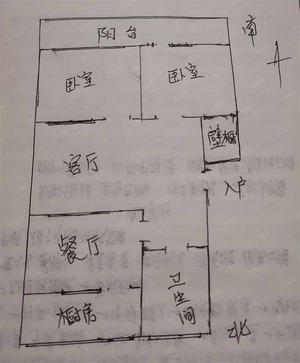 阳台
南
卧室
卧室
壁柜
客厅
入户
餐厅
卫生间
厨房
北